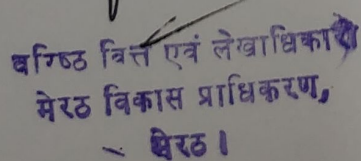 वरिष्ठ वित्त एवं लेखाधिकारी
मेरठ विकास प्राधिकरण,
मेरठ ।